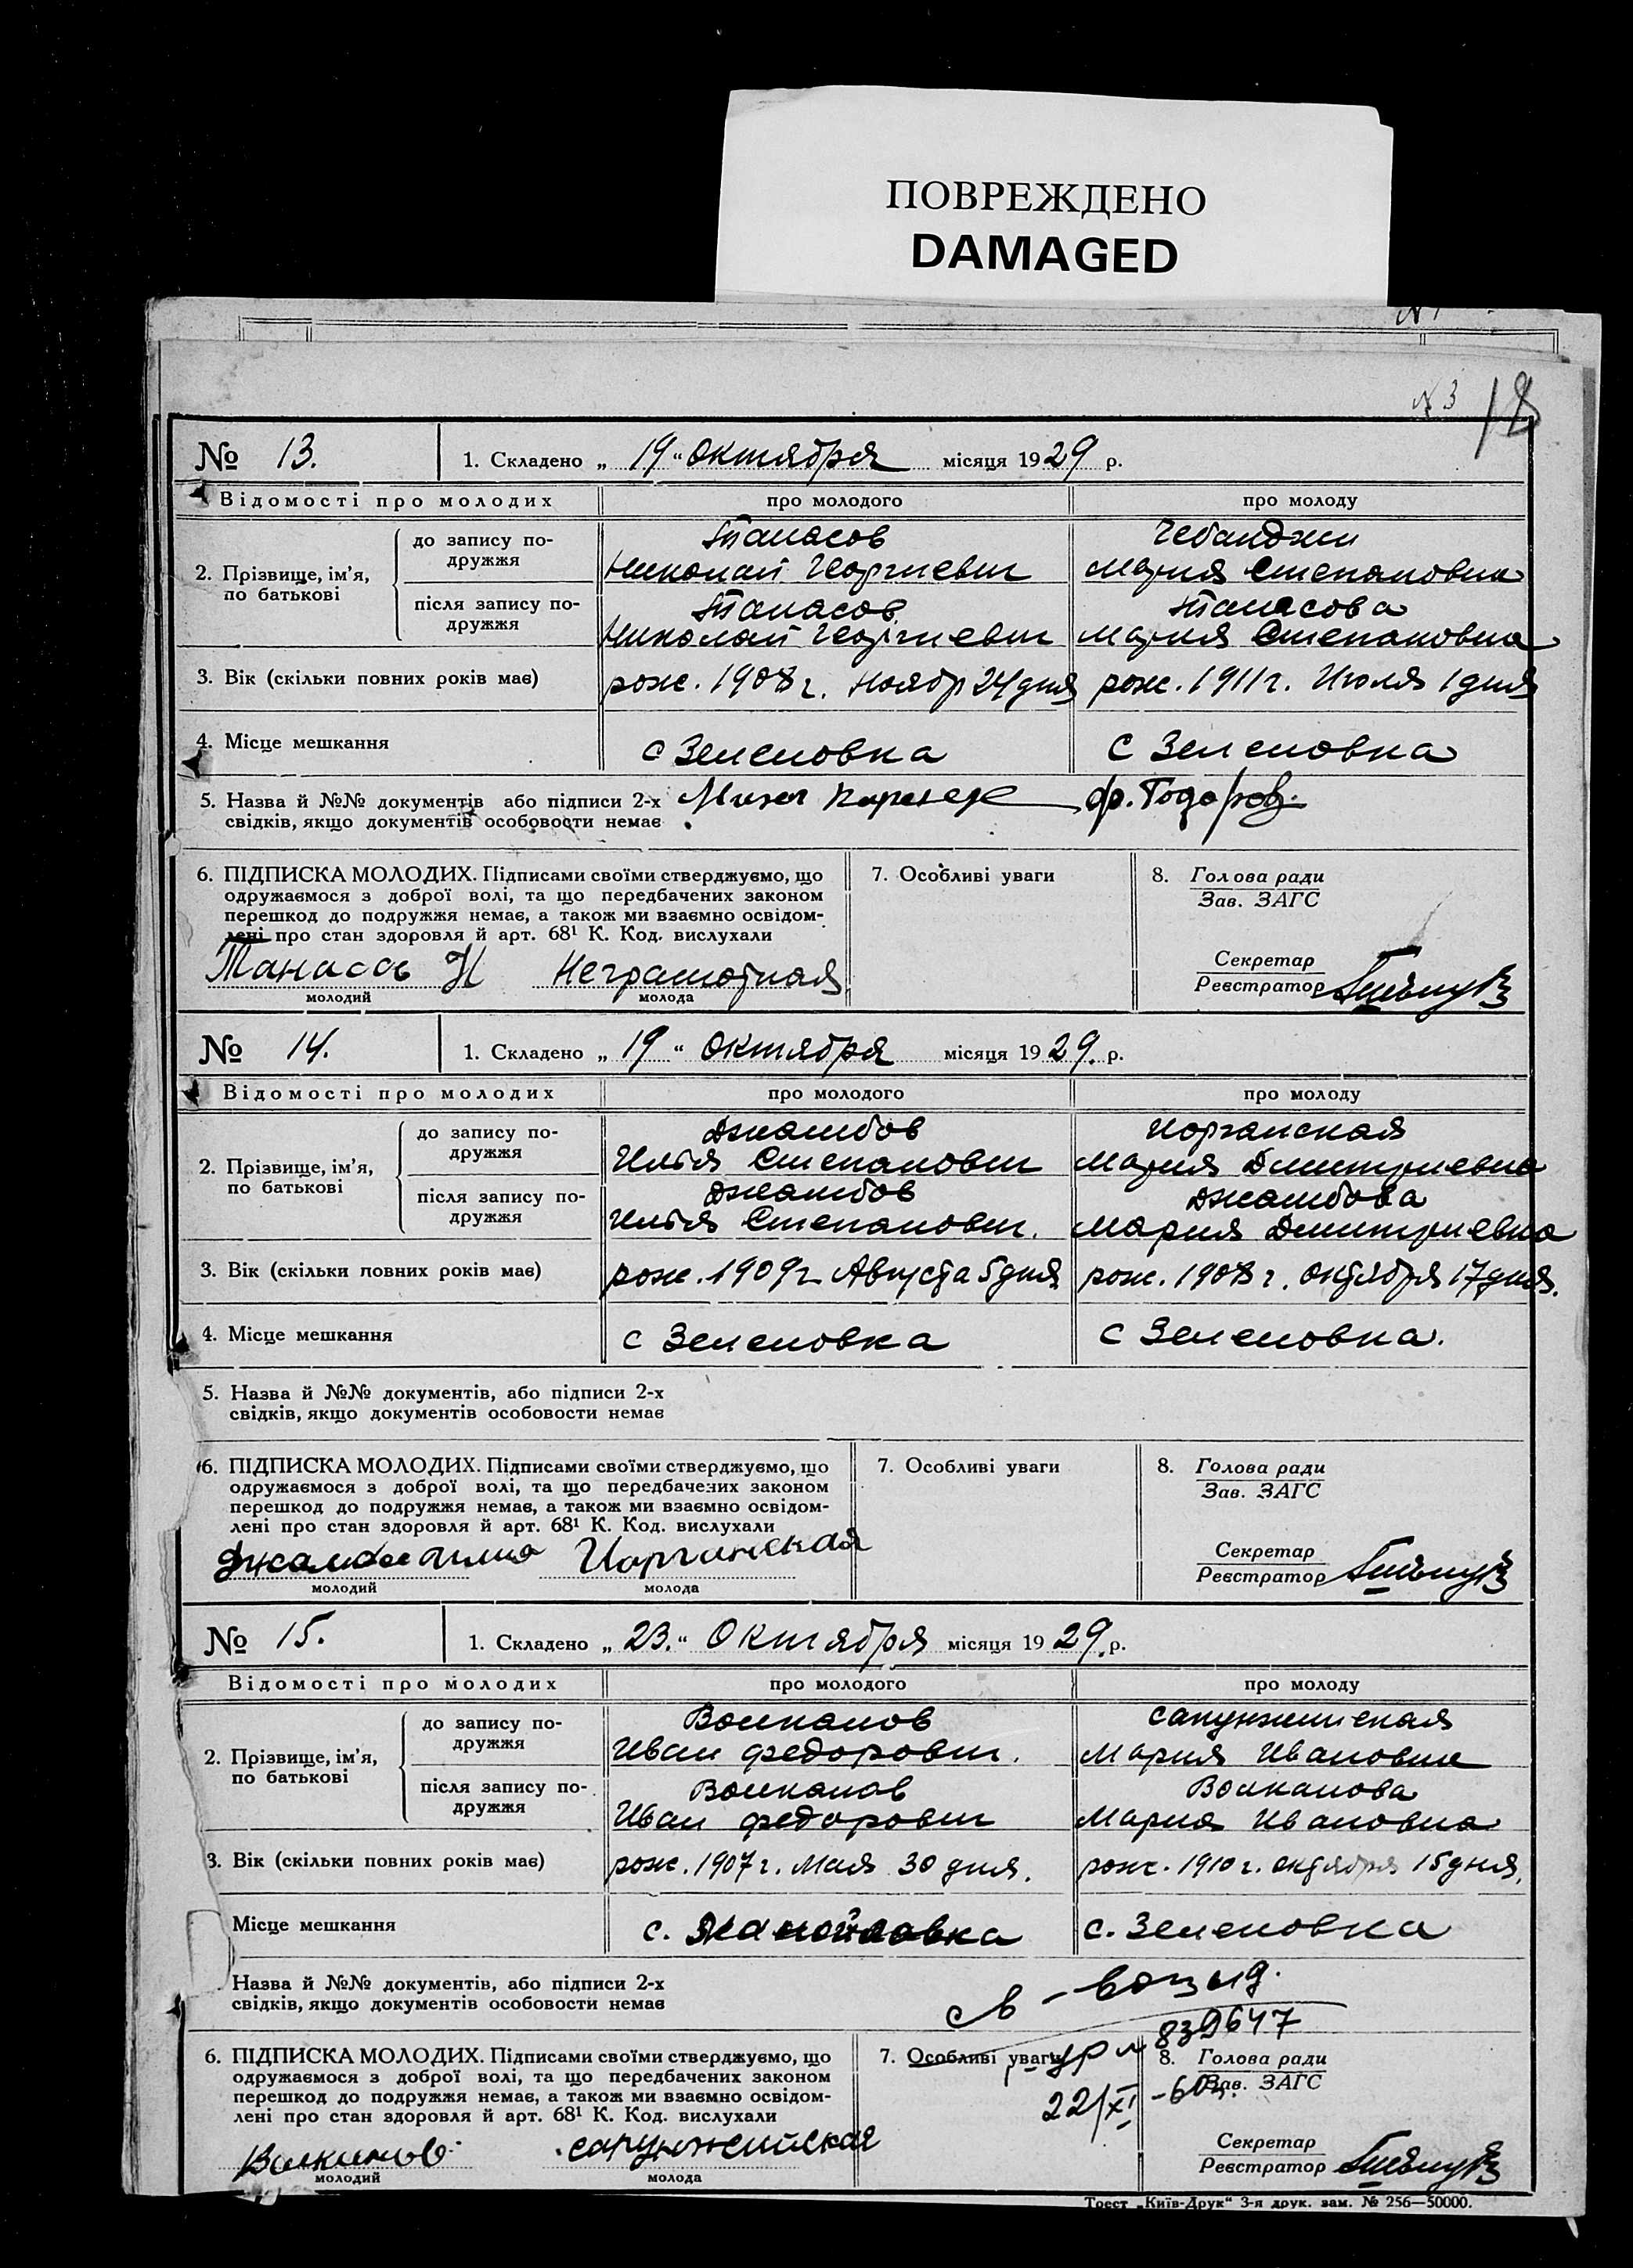 ПОВРЕЖДЕНО
DAMAGED
№ 3
18
№ 13. 1. Складено „ 19 “ Октября місяця 1929 р.
Відомості про молодих про молодого про молоду
2. Прізвище, ім’я, по батькові
до запису подружжя
Танасов Чебанджи
Николай Георгиевич Мария Степановна
після запису подружжя
Танасов Танасова
Николай Георгиевич Мария Степановна
3. Вік (скільки повних років має) рож. 1908 г. Ноябр 24 дня рож. 1911 г. Июля 1 дня
4. Місце мешкання с Зеленовка с Зеленовка
5. Назва й №№ документів або підписи 2-х ф. Тодоров
свідків, якщо документів особовости немає
6. ПІДПИСКА МОЛОДИХ. Підписами своїми стверджуємо, що
одружаємося з доброї волі, та що передбачених законом
перешкод до подружжя немає, а також ми взаємно освідом-
лені про стан здоровля й арт. 68¹ К. Код. вислухали
Танасов Н Неграмотная
молодий молода
7. Особливі уваги
8. Голова ради
Зав. ЗАГС
Секретар
Реєстратор
№ 14. 1. Складено „ 19 “ Октября місяця 1929. р.
Відомості про молодих про молодого про молоду
2. Прізвище, ім’я, по батькові
до запису подружжя
Джамбов Иорганская
Илья Степанович Мария Дмитриевна
після запису подружжя
Джамбов Джамбова
Илья Степанович. Мария Дмитриевна
3. Вік (скільки повних років має) рож. 1909 г Августа 5 дня рож. 1908 г. Октября 17 дня.
4. Місце мешкання с Зеленовка с Зеленовка.
5. Назва й №№ документів, або підписи 2-х
свідків, якщо документів особовости немає
6. ПІДПИСКА МОЛОДИХ. Підписами своїми стверджуємо, що
одружаємося з доброї волі, та що передбачених законом
перешкод до подружжя немає, а також ми взаємно освідом-
лені про стан здоровля й арт. 68¹ К. Код. вислухали
Иорганская
молодий молода
7. Особливі уваги
8. Голова ради
Зав. ЗАГС
Секретар
Реєстратор
№ 15. 1. Складено „ 23. “ Октября місяця 1929. р.
Відомості про молодих про молодого про молоду
2. Прізвище, ім’я, по батькові
до запису подружжя
Волканов Сапунжинская
Иван Федорович. Мария Ивановна
після запису подружжя
Волканов Волканова
Иван Федорович Мария Ивановна
3. Вік (скільки повних років має) рож. 1907 г. Мая 30 дня. рож. 1910 г. Октября 15 дня.
Місце мешкання с. Манойловка с. Зеленовка
Назва й №№ документів, або підписи 2-х
свідків, якщо документів особовости немає
св-во выд.
839647
22/XI -60г.
6. ПІДПИСКА МОЛОДИХ. Підписами своїми стверджуємо, що
одружаємося з доброї волі, та що передбачених законом
перешкод до подружжя немає, а також ми взаємно освідом-
лені про стан здоровля й арт. 68¹ К. Код. вислухали
Волканов
молодий молода
7. Особливі уваги
8. Голова ради
Зав. ЗАГС
Секретар
Реєстратор
Трест „Київ-Друк“ 3-я друк. зам. № 256—50000.